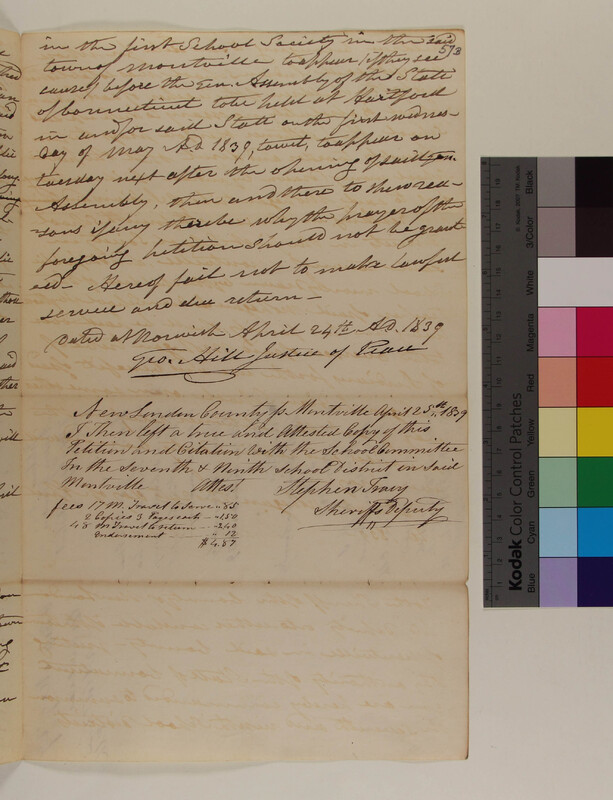 in the first School Society in the said
57B
town of Montville to appear (if they see
cause) before the Gen. Assembly of the State
of Connecticut to be held at Hartford
in and for said State on the first wednes-
day of May A.D 1839, towit, to appear on
tuesday next after the opening of said Gen.
Assembly, then and there to shew rea-
sons if any there be why the prayer of the
foregoing petition should not be grant-
ed- Hereof fail not to make lawful
service and due return-
Dated at Norwich April 24th A.D. 1839
Geo. Hill Justice of Peace
New London County ss Montville April 25th 1839
I Then left a true and Attested Copy of this
Petition and Citation With the School Committee
In the Seventh & Ninth School District in Said
Montville Attest Stephen Tracy
Sheriffs Deputy
fees 17 M. Travel to Serve .. 85
2 Copies 3 Pages each - 1.50
48 M Travel to return - 2.40
Endorsement - 12
$4.87
Kodak Color Control Patches
Blue Cyan Green Yellow Red Magenta White 3/Color Black